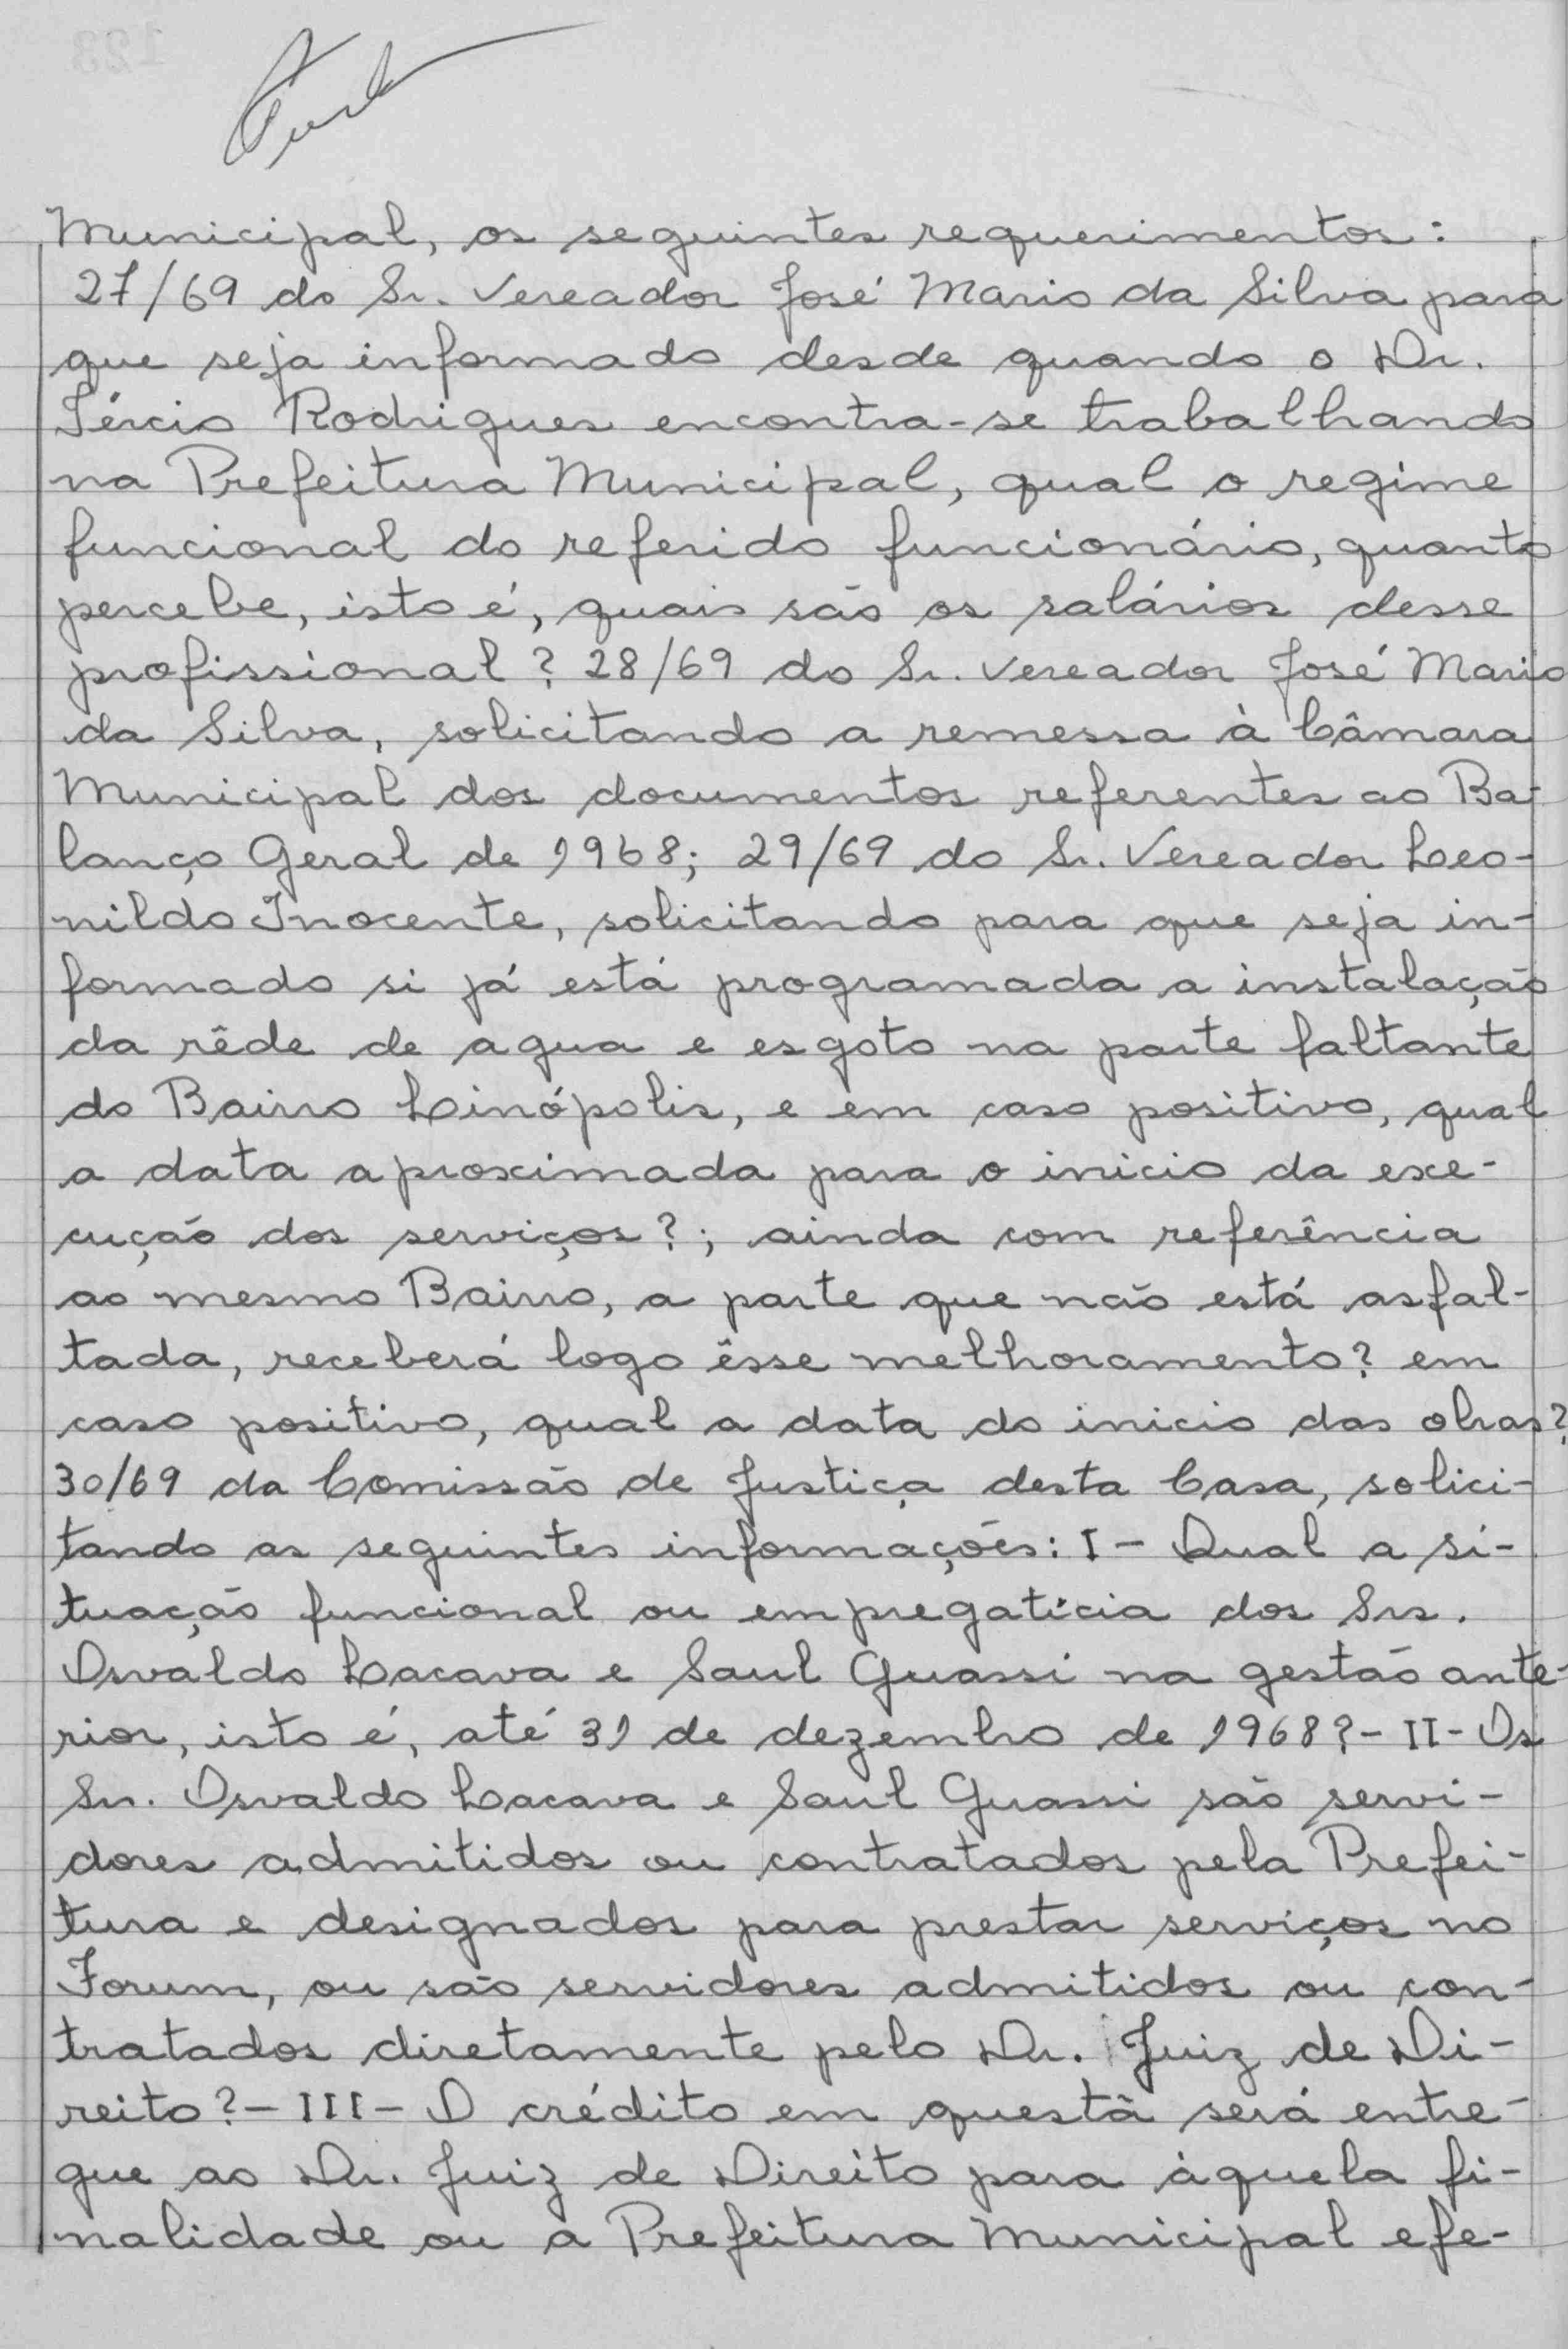 Municipal, os seguintes requerimentos:
27/69 do Sr. Vereador José Mario da Silva para
que seja informado desde quando o Dr.
Tércio Rodrigues encontra-se trabalhando
na Prefeitura Municipal, qual o regime
funcional do referido funcionário, quanto
percebe, isto é, quais são os salários desse
profissional? 28/69 do Sr. Vereador José Mario
da Silva, solicitando a remessa à Câmara
Municipal dos documentos referentes ao Ba-
lanço Geral de 1968; 29/69 do Sr. Vereador Leo-
nildo Inocente, solicitando para que seja in-
formado si já está programada a instalação
da rêde de agua e esgoto na parte faltante
do Bairro Linópolis, e em caso positivo, qual
a data aproximada para o inicio da exe-
cução dos serviços?; ainda com referência
ao mesmo Bairro, a parte que não está asfal-
tada, receberá logo êsse melhoramento? em
caso positivo, qual a data do inicio das obras?
30/69 da Comissão de Justiça desta Casa, solici-
tando as seguintes informações: I - Qual a si-
tuação funcional ou empregatícia dos Srs.
Osvaldo Lacava e Saul Guassi na gestão ante-
rior, isto é, até 31 de dezembro de 1968? - II - Os
Sr. Osvaldo Lacava e Saul Guassi são servi-
dores admitidos ou contratados pela Prefei-
tura e designados para prestar serviços no
Forum, ou são servidores admitidos ou con-
tratados diretamente pelo Dr. Juiz de Di-
reito? - III - O crédito em questã será entre-
gue ao Dr. Juiz de Direito para àquela fi-
nalidade ou a Prefeitura Municipal efe-